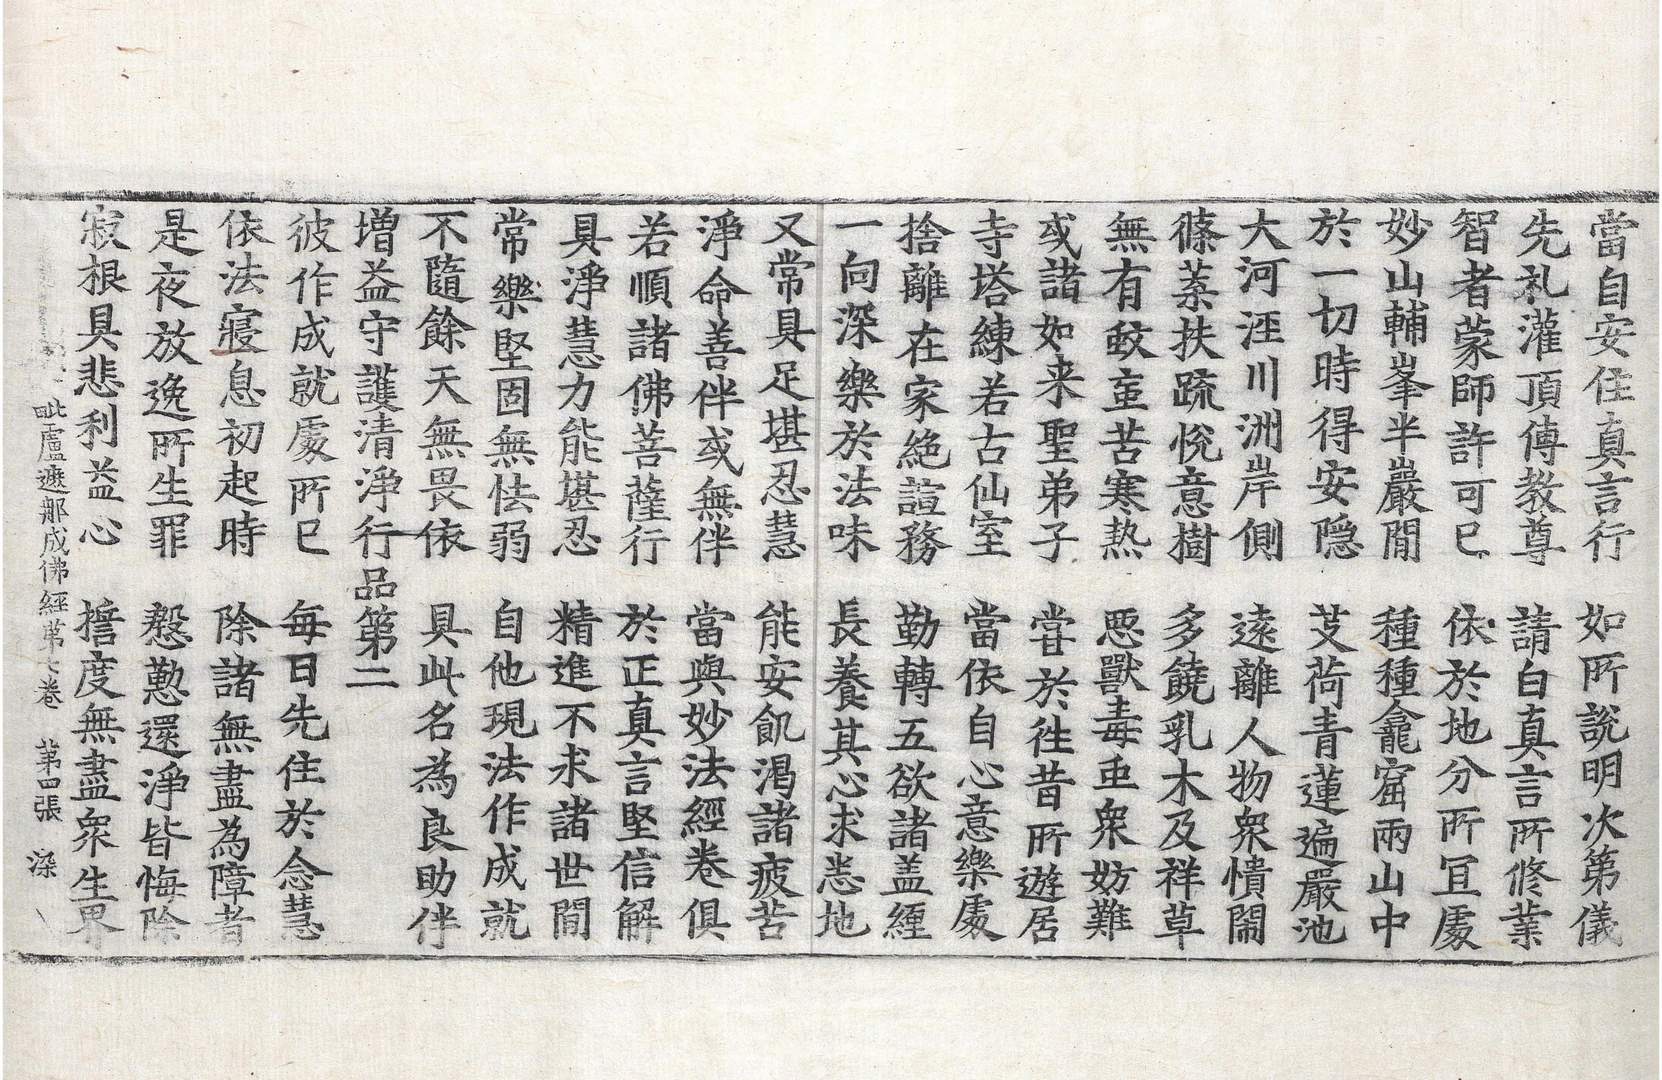 當自安住真言行　如所說明次第儀
先礼灌頂傳教尊　請白真言所修業
智者蒙師許可已　依於地分所宜處
妙山輔峯半巖閒　種種龕窟兩山中
於一切時得安隱　芰荷青蓮遍嚴池
大河涇川洲岸側　遠離人物眾憒閙
篠蕠扶疏悅意樹　多饒乳木及祥草
無有蚊䖝苦寒熱　惡獸毒䖝眾妨難
或諸如来聖弟子　甞於往昔所遊居
寺塔練若古仙室　當依自心意樂處
捨離在家絶諠務　勤轉五欲諸盖纏
一向深樂於法味　長養其心求悉地
又常具足堪忍慧　能安飢渴諸疲苦
淨命善伴或無伴　當與妙法經卷俱
若順諸佛菩薩行　於正真言堅信解
具淨慧力能堪忍　精進不求諸世間
常樂堅固無怯弱　自他現法作成就
不隨餘天無畏依　具此名為良助伴
增益守護清淨行品第二
彼作成就處所已　每日先住於念慧
依法寢息初起時　除諸無盡為障者
是夜放逸所生罪　慇懃還淨皆悔除
寂根具悲利益心　擔度無盡眾生界
毗盧遮那成佛經第七卷　第四張　染